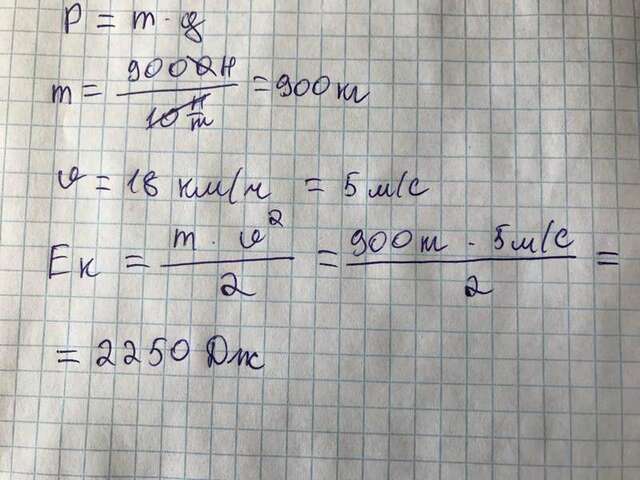 P = m · g
m = 9000н / 10 н/m = 900 кг
v = 18 км/ч = 5 м/с
Eк = m · v² / 2 = 900 кг · 5 м/с / 2 =
= 2250 Дж